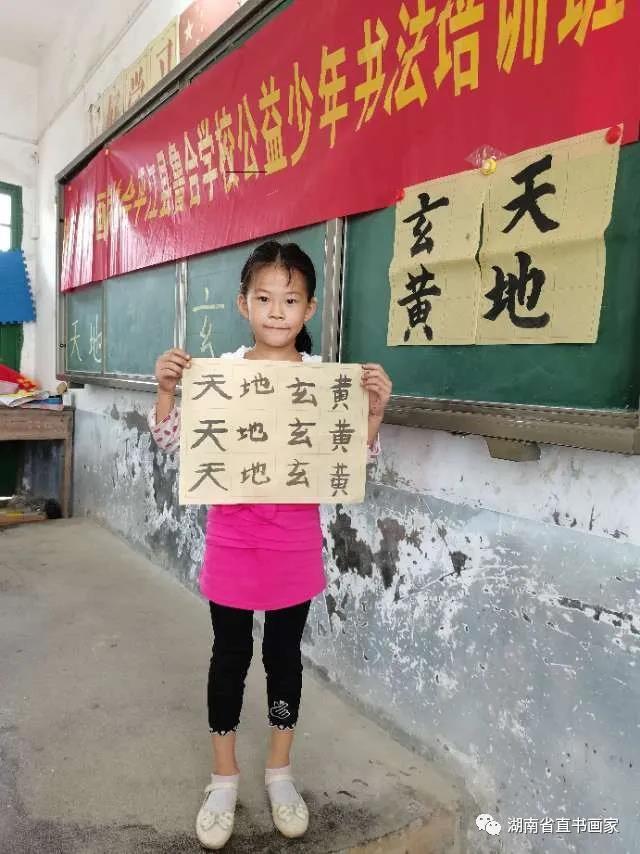 学习
平江县鲁合学校公益少年书法培训班
天地
玄黄
天地
玄
天地玄黄
天地玄黄
天地玄黄
湖南省直书画家